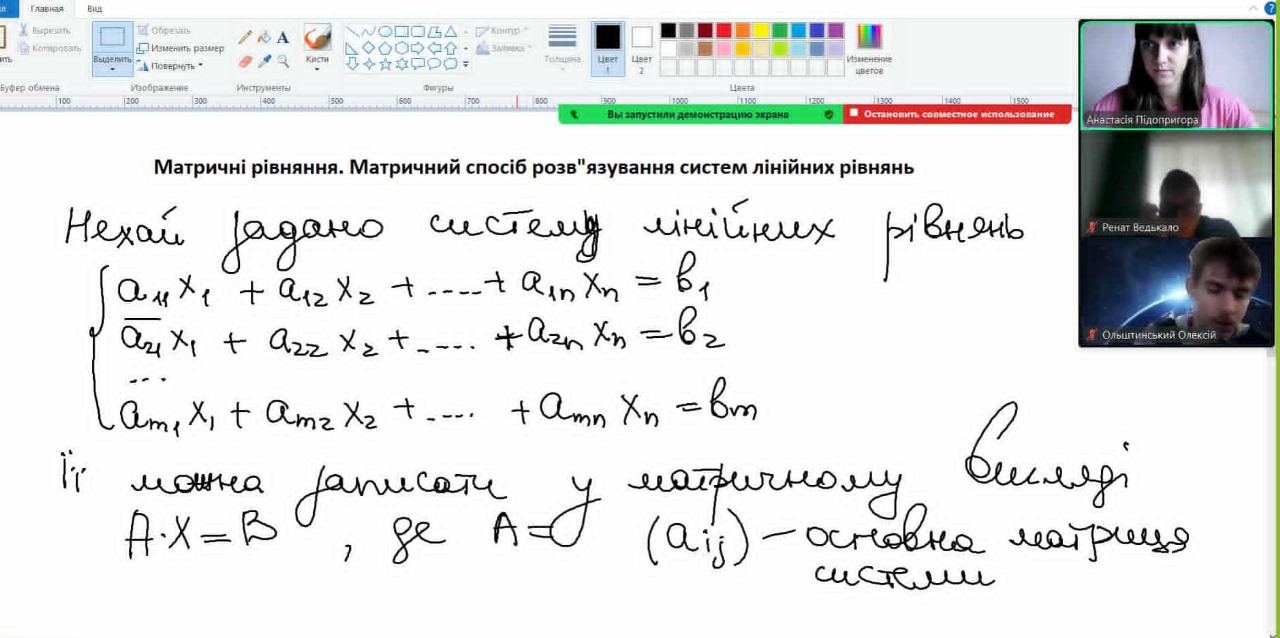 Главная Вид
Вырезать
Копировать
Буфер обмена
Выделить
Обрезать
Изменить размер
Повернуть
Изображение
Инструменты
Кисти
Контур
Заливка
Фигуры
Толщина
Цвет 1
Цвет 2
Цвета
Изменение цветов
100 200 300 400 500 600 700 800 900 1000 1100 1200 1300 1400 1500
Вы запустили демонстрацию экрана
Остановить совместное использование
Анастасія Підопригора
Ренат Ведькало
Ольштинський Олексій
Матричні рівняння. Матричний спосіб розв"язування систем лінійних рівнянь
Нехай задано систему лінійних рівнянь
a₁₁x₁ + a₁₂x₂ + ....+ a₁ₙxₙ = b₁
a₂₁x₁ + a₂₂x₂ + ..... + a₂ₙxₙ = b₂
...
aₘ₁x₁ + aₘ₂x₂ + .... + aₘₙxₙ = bₘ
Її можна записати у матричному вигляді
A·X=B , де A= (aᵢⱼ) – основна матриця
системи